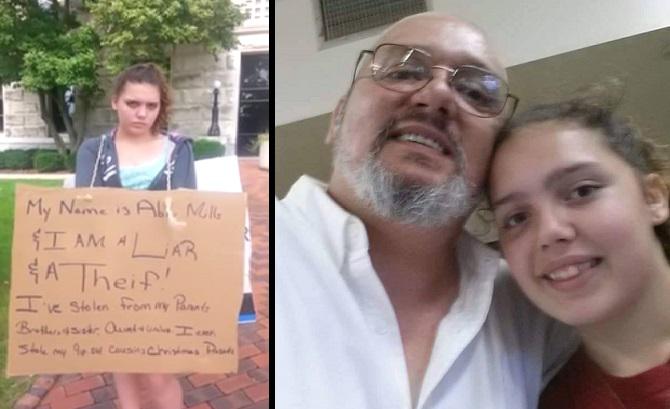 My Name is
& I AM A LIAR
& A Theif!
I've Stolen from my Parents
Brothers & sister, Aunt & Uncle. I even
Stole my 9 yr old Cousins Christmas Presents